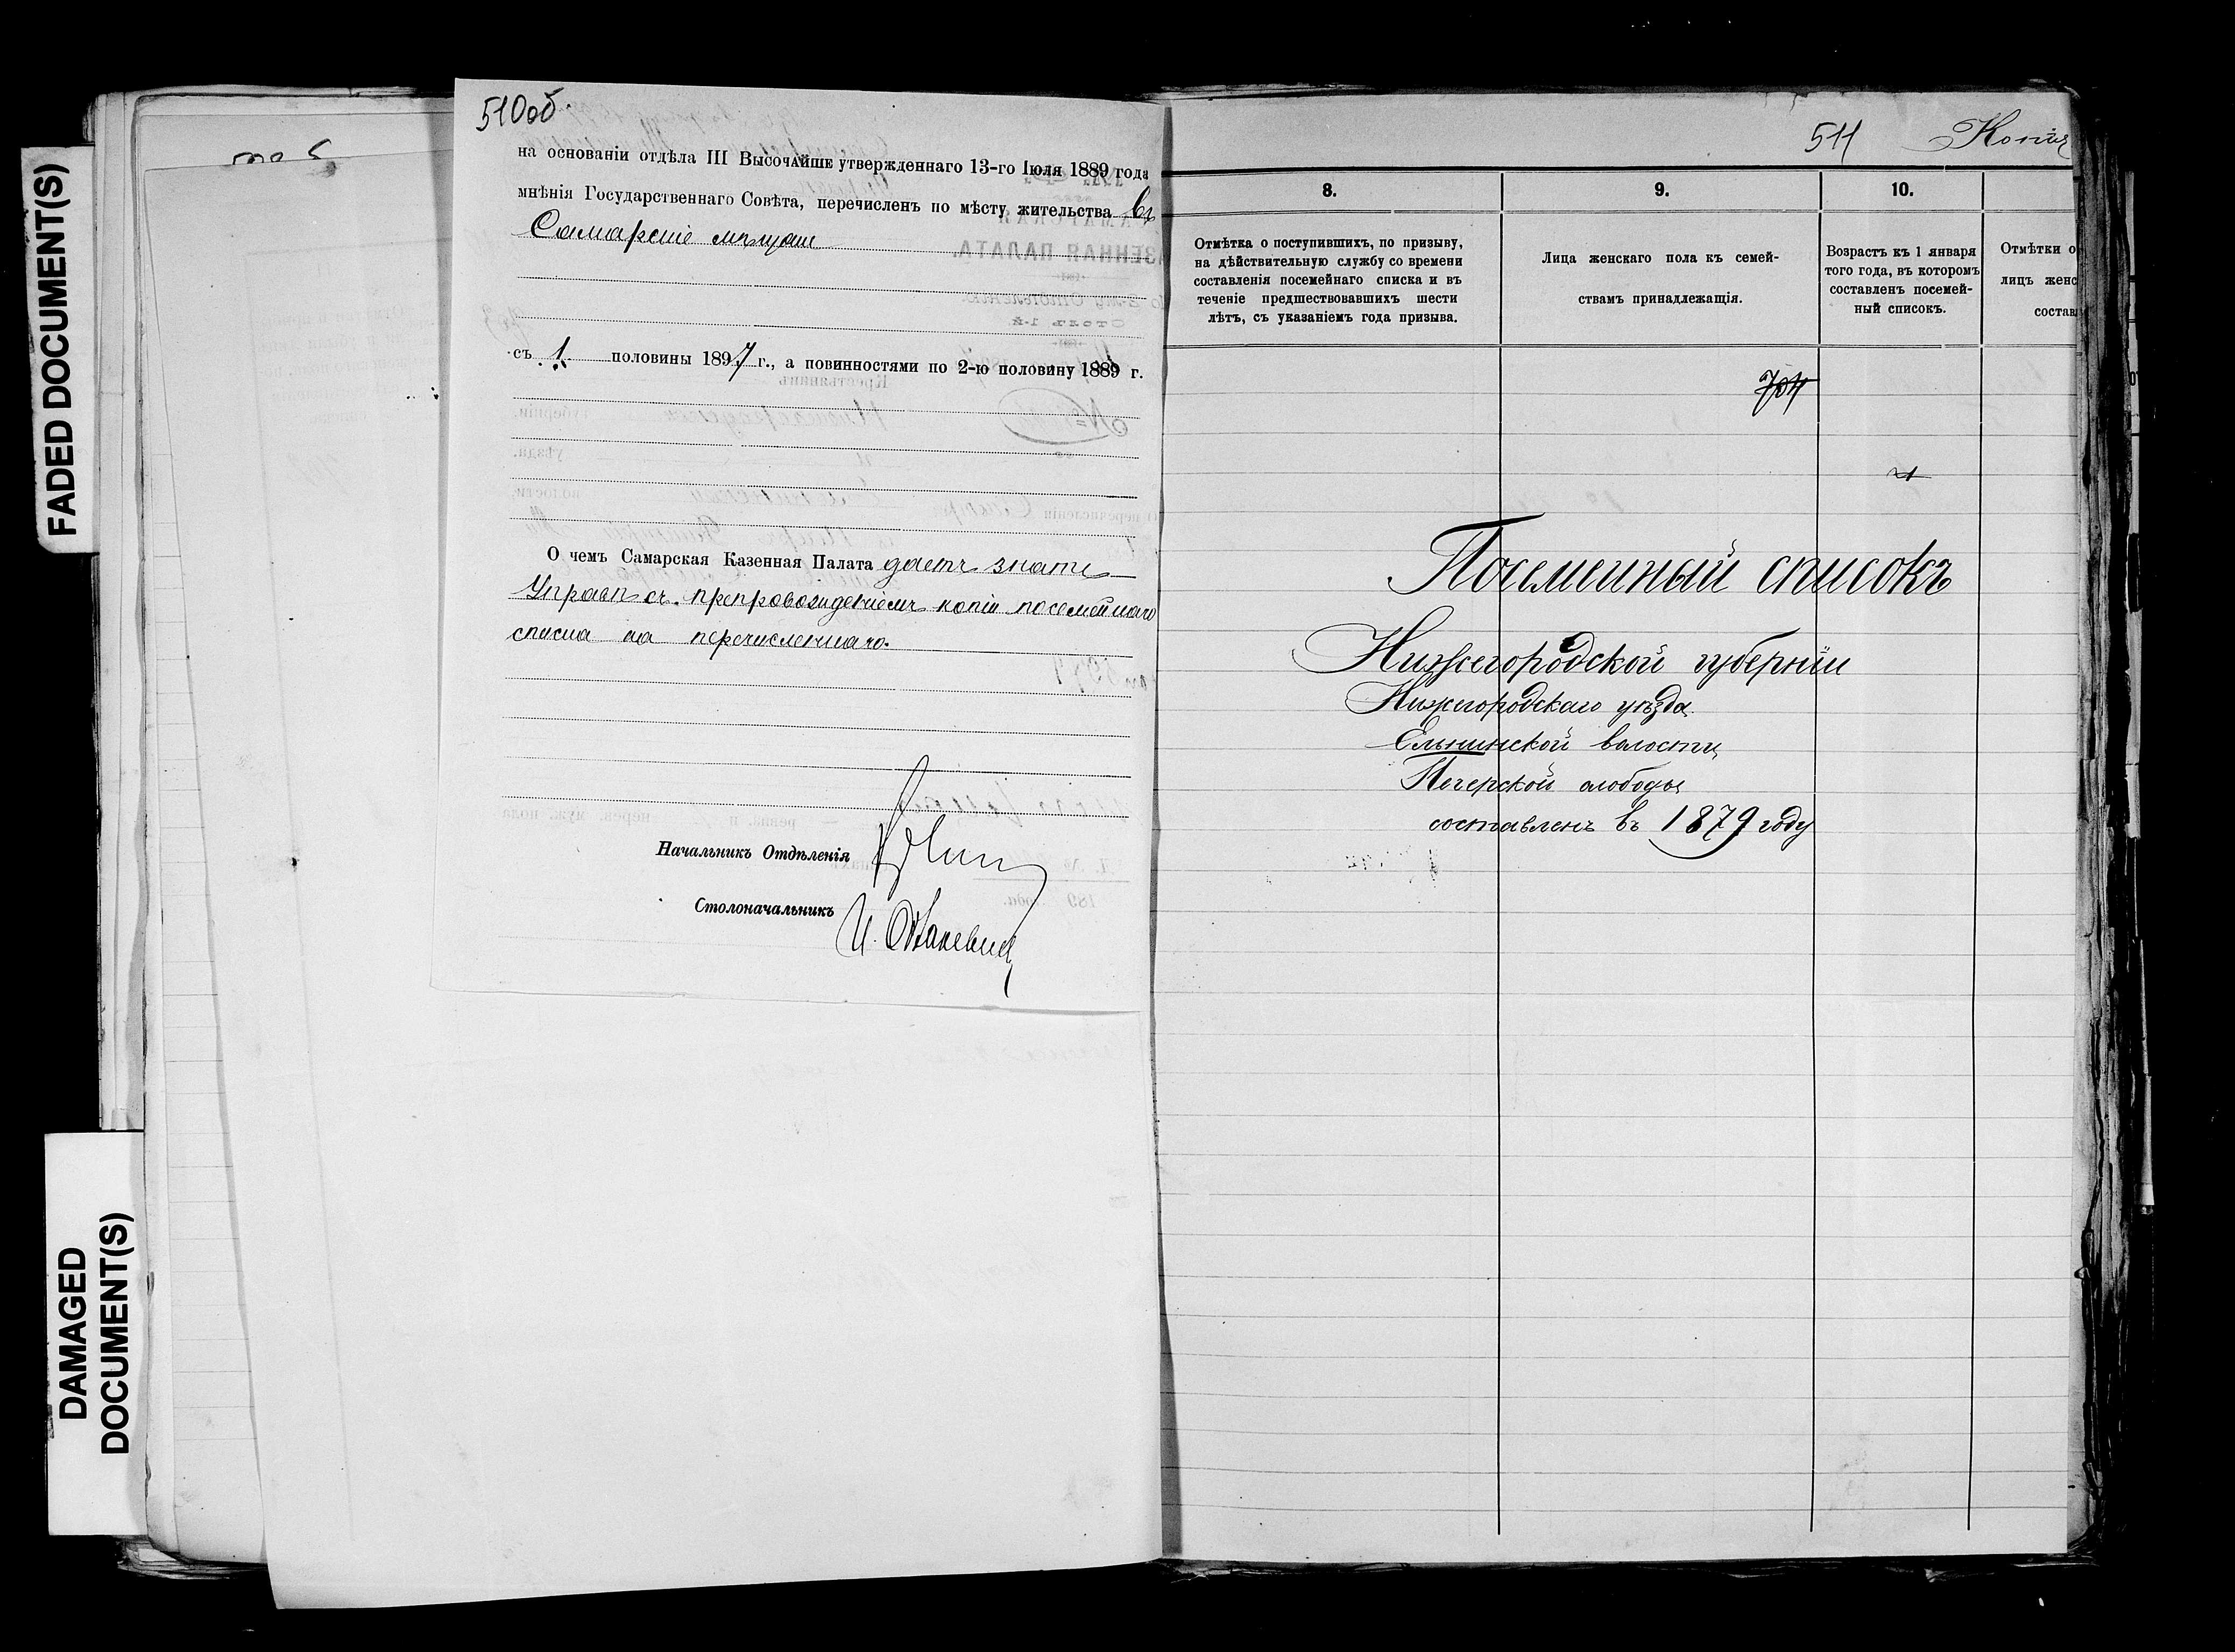 FADED DOCUMENT(S)
DAMAGED
DOCUMENT(S)
510об.
на основаніи отдѣла III Высочайше утвержденнаго 13-го Іюля 1889 года
мнѣнія Государственнаго Совѣта, перечисленъ по мѣсту жительства въ
Самарскіе мѣщане
съ 1 половины 1897 г., а повинностями по 2-ю половину 1889 г.
О чемъ Самарская Казенная Палата даетъ знать
Управѣ съ препровожденіемъ копіи посемейнаго
списка на перечисленнаго.
Начальникъ Отдѣленія
Столоначальникъ
511 Копія
8. 9. 10.
Отмѣтка о поступившихъ, по призыву,
на дѣйствительную службу со времени
составленія посемейнаго списка и въ
теченіе предшествовавшихъ шести
лѣтъ, съ указаніемъ года призыва.
Лица женскаго пола къ семей-
ствамъ принадлежащія.
Возрастъ къ 1 января
того года, въ которомъ
составленъ посемей-
ный списокъ.
Отмѣтки о
лицъ женс
состав
704
Посемейный списокъ
Нижегородской губерніи
Нижегородскаго уѣзда
Ельнинской волости
Печерской слободы
составленъ въ 1879 году